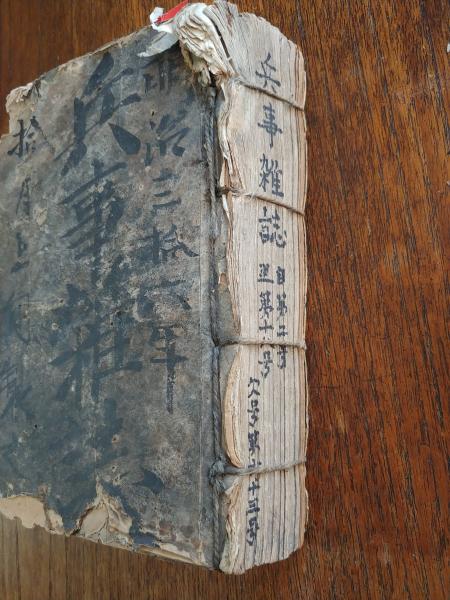 明治三拾六年
兵事雑誌
拾月
兵事雑誌
自第二号
至第十一号
欠号第六十三号